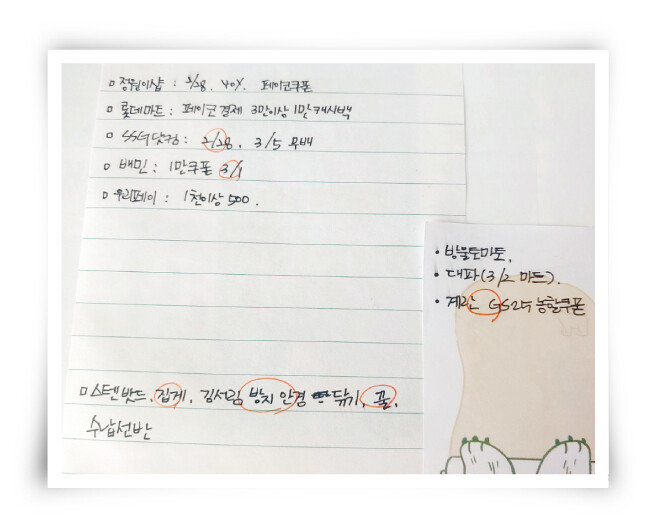 □ 정원이샵 : 2/28. 40%. 페이코쿠폰
□ 롯데마트 : 페이코결제 3만이상 1만캐시백
□ SSG닷컴 : 2/28, 3/5 무배
□ 배민 : 1만쿠폰 3/1
□ 우리페이 : 1천이상 500.
□ 스텐밧드, 집게, 김서림 방지 안경 닦기, 꿀,
수납선반
• 방울토마토.
• 대파(3/2 마트).
• 계란 GS25 농할쿠폰